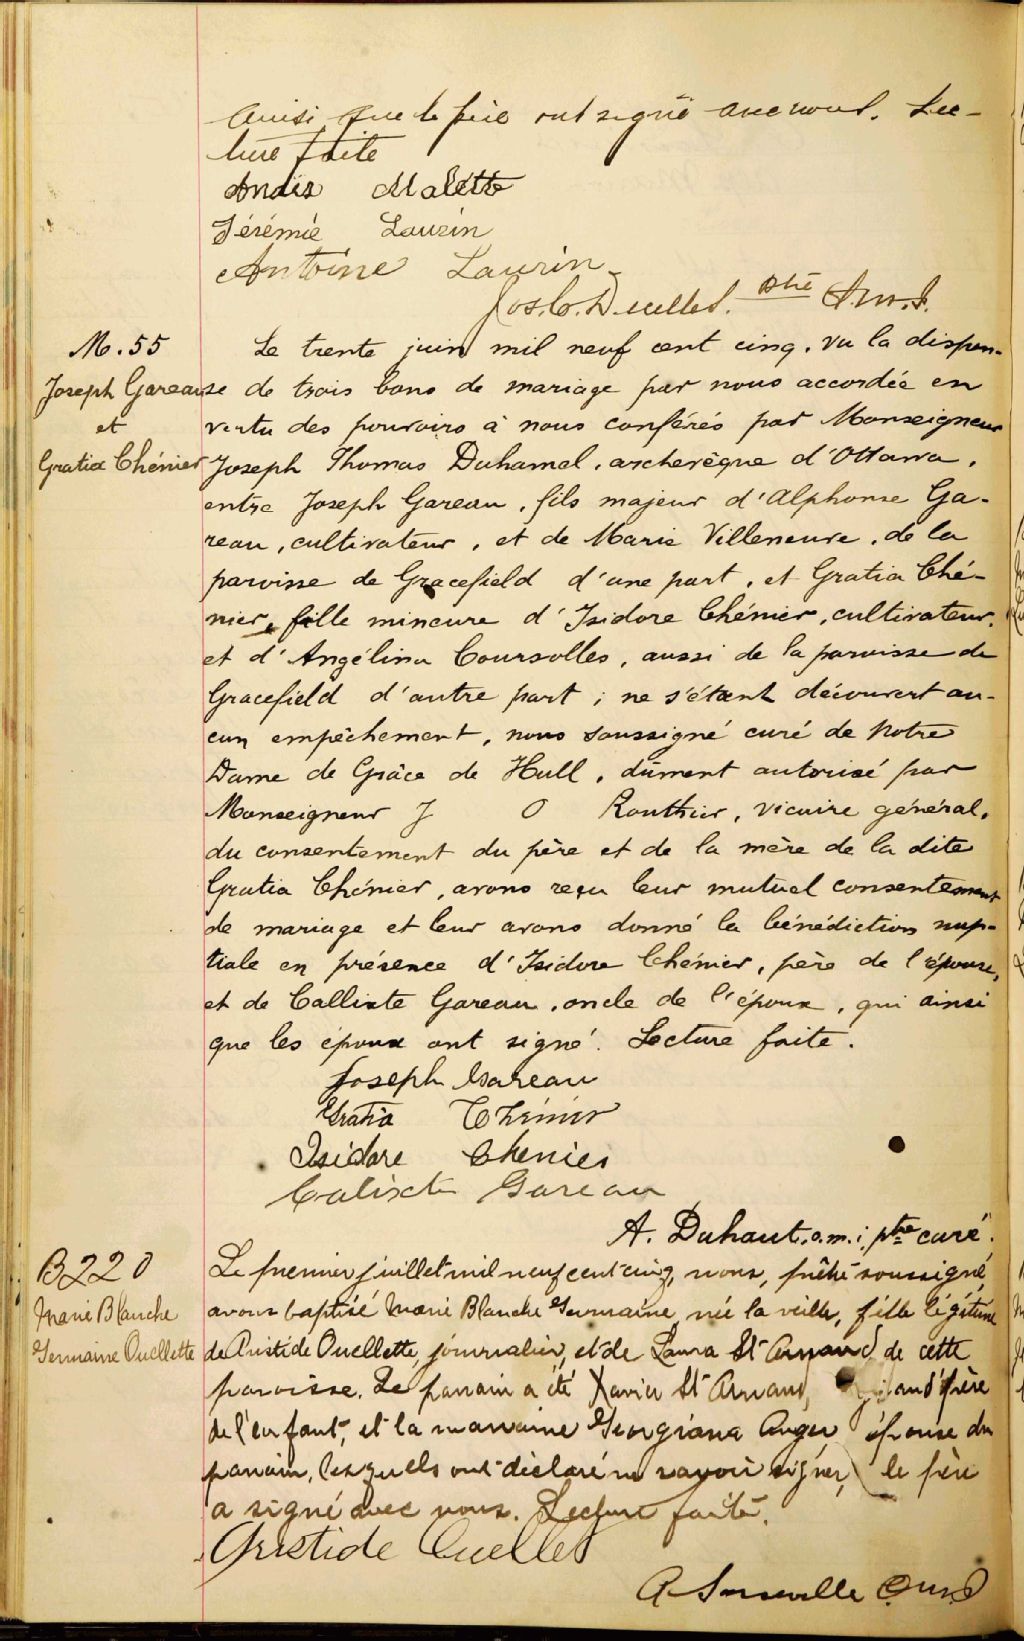 ainsi que le père ont signé avec nous. Lec-
ture faite
Anaïs Malette
Jérémie Lauzin
Antoine Lauzin
Jos. C. Ouellet. ptre O.M.I.
M. 55
Joseph Gareau
et
Gratia Chénier
Le trente juin mil neuf cent cinq, vu la dispen-
se de trois bans de mariage par nous accordée en
vertu des pouvoirs à nous conférés par Monseigneur
Joseph Thomas Duhamel, archevêque d'Ottawa,
entre Joseph Gareau, fils majeur d'Alphonse Ga-
reau, cultivateur, et de Marie Villeneuve, de la
paroisse de Gracefield d'une part, et Gratia Ché-
nier, fille mineure d'Isidore Chénier, cultivateur,
et d'Angélina Coursolles, aussi de la paroisse de
Gracefield d'autre part ; ne s'étant découvert au-
cun empêchement, nous soussigné curé de Notre
Dame de Grâce de Hull, dûment autorisé par
Monseigneur J O Routhier, vicaire général,
du consentement du père et de la mère de la dite
Gratia Chénier, avons reçu leur mutuel consentement
de mariage et leur avons donné la bénédiction nup-
tiale en présence d'Isidore Chénier, père de l'épouse,
et de Callixte Gareau, oncle de l'époux, qui ainsi
que les époux ont signé. Lecture faite.
Joseph Gareau
Gratia Chénier
Isidore Chenier
Calixte Gareau
A. Duhaut, o.m.i. ptre curé.
B 220
Marie Blanche
Germaine Ouellette
Le premier juillet mil neuf cent cinq, nous, prêtre soussigné,
avons baptisé Marie Blanche Germaine, née la veille, fille légitime
de Aristide Ouellette, journalier, et de Laura St Arnaud de cette
paroisse. Le parrain a été Xavier St Arnaud, grand'père
de l'enfant, et la marraine Georgiana Auger épouse du
parrain, lesquels ont déclaré ne savoir signer, le père
a signé avec nous. Lecture faite.
Aristide Ouellet
A. O.M.I.